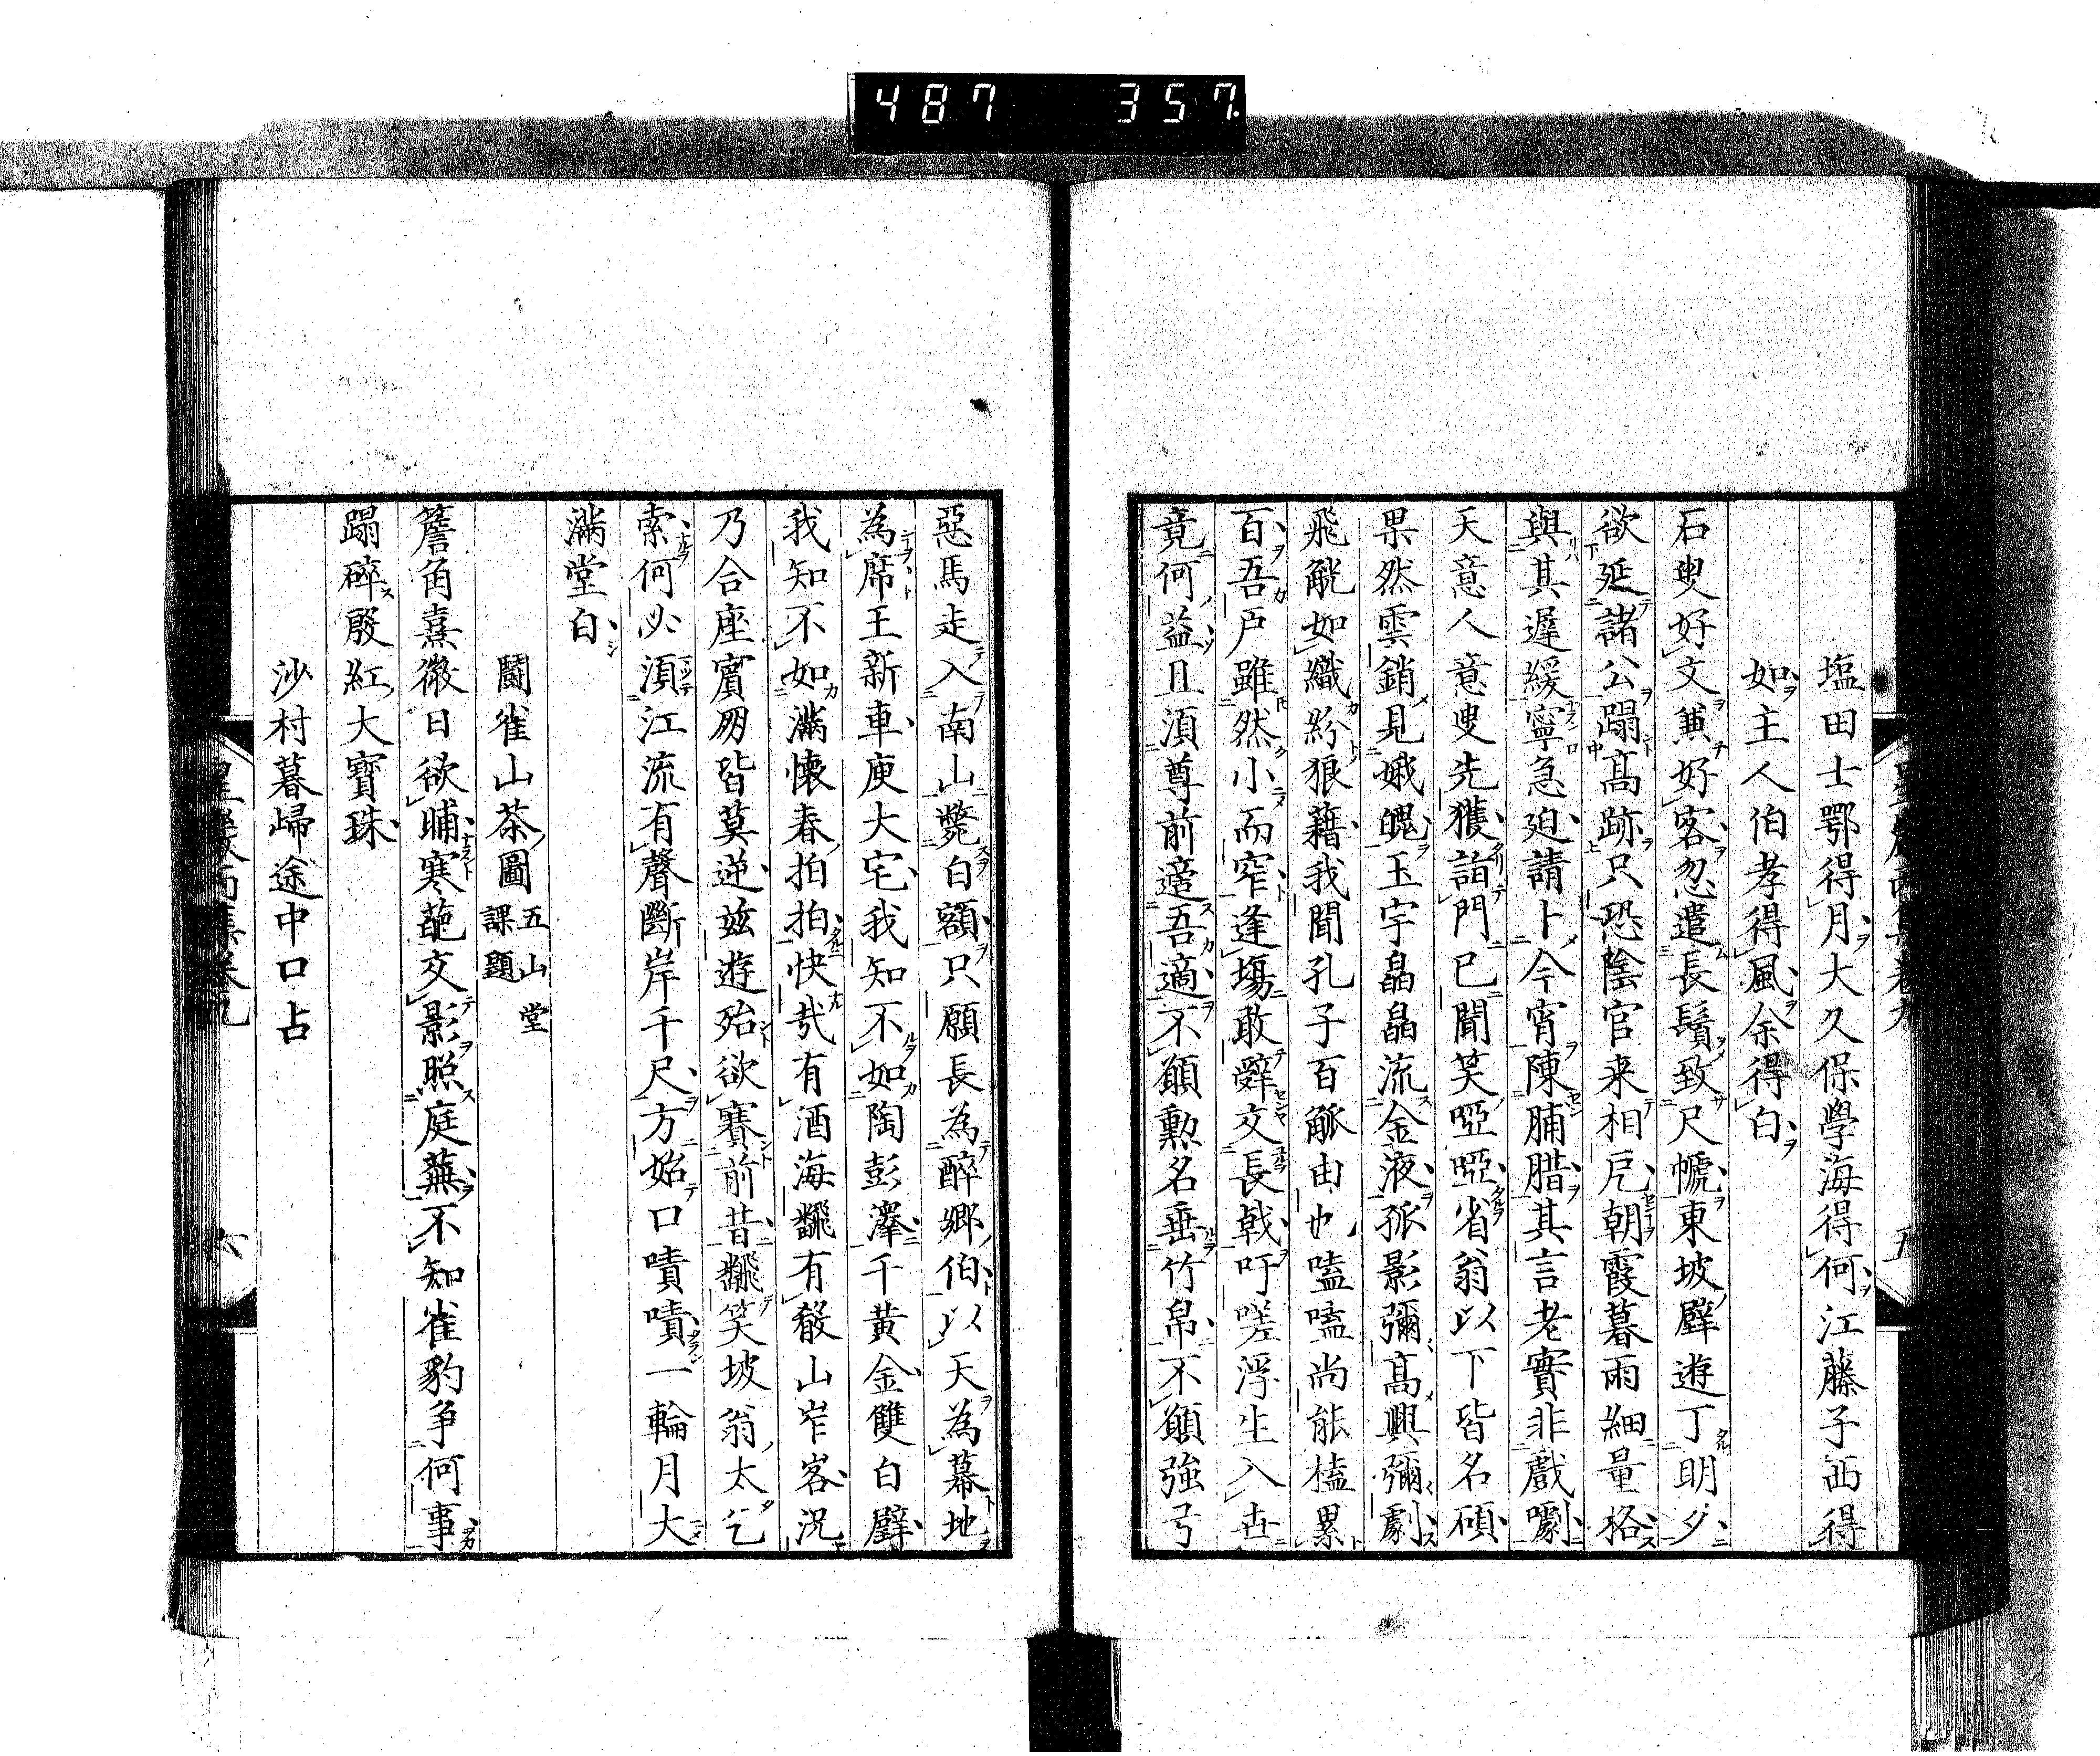 487 357.
塩田士鄂得月大久保學海得何江藤子西得
如主人伯孝得風余得白
石叟好文兼好客忽遣長鬚致尺㡡東坡壁遊丁明夕
欲延諸公蹋髙跡只恐陰官来相厄朝霞暮雨細量格
與其遲緩寧急廹請卜今宵陳脯腊其言老實非戲噱
天意人意叟先獲詣門已聞笑啞啞省翁以下皆名碩
果然雲銷見娥魄玉宇皛皛流金液孤影彌髙興彌劇
飛觥如織紛狼藉我聞孔子百觚由也嗑嗑尚能榼累
百吾戸雖然小而窄逢塲敢辭交長戟吁嗟浮生入世
竟何益且湏尊前適吾適不願勲名垂竹帛不願強弓
惡馬走入南山斃白額只願長為醉郷伯以天為幕地
為席王新車庾大宅我知不如陶彭澤千黄金雙白璧
我知不如滿懐春拍拍快哉有酒海飜有殽山岝峉況
乃合座賓朋皆莫逆玆遊殆欲賽前昔飜笑坡翁太乞
索何必湏江流有聲斷岸千尺方始口嘖嘖一輪月大
滿堂白
鬪雀山茶圖 五山堂課題
簷角熹微日欲晡寒葩交影照庭蕪不知雀豹爭何事
蹋碎殷紅大寶珠
沙村暮歸途中口占
六